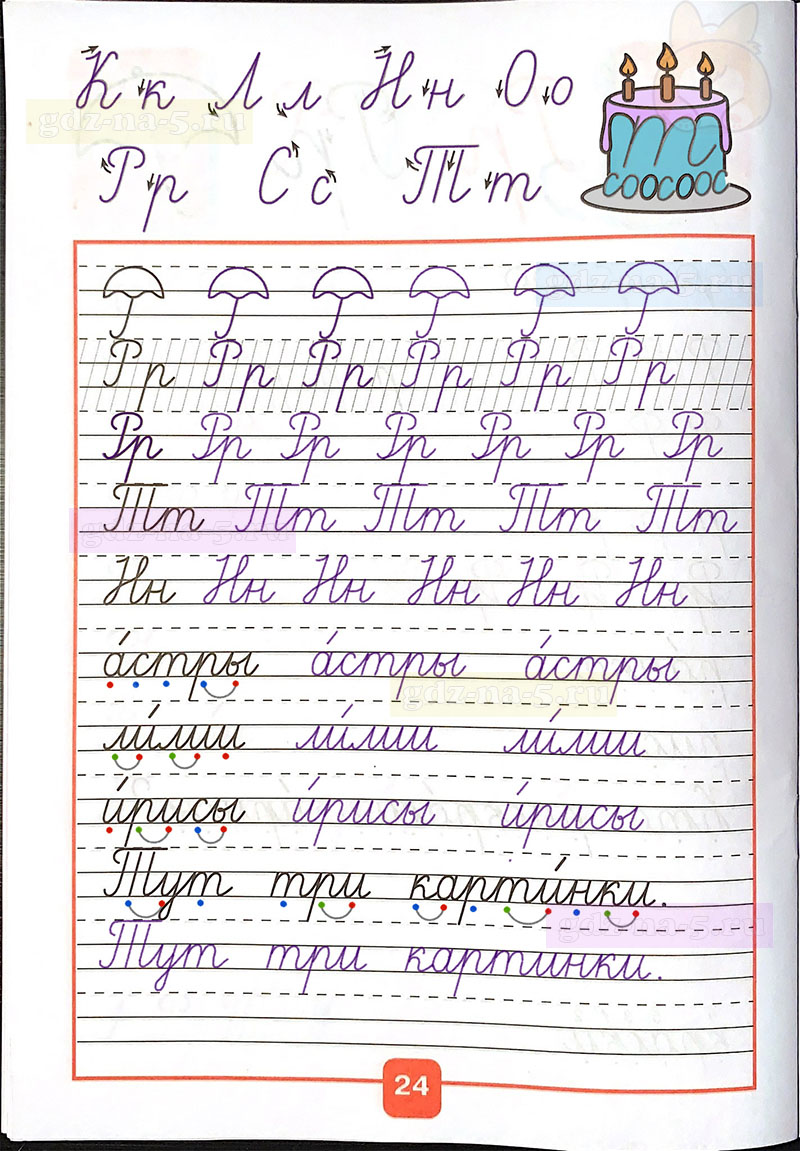 К к Л л Н н О о
gdz-na-5.ru
Р р С с Т т
т
соосоос
gdz-na-5.ru
Рр Рр Рр Рр Рр Рр
Рр Рр Рр Рр Рр Рр Рр
Тт Тт Тт Тт Тт
gdz-na-5.ru
Нн Нн Нн Нн Нн Нн
а́стры а́стры а́стры
gdz-na-5.ru
ли́лии ли́лии ли́лии
и́рисы и́рисы и́рисы
Тут три карти́нки.
gdz-na-5.ru
Тут три картинки.
24